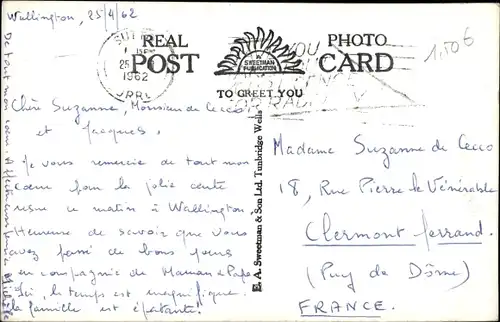 Wallington, 25/4/62
Chère Suzanne, Monsieur de Cecco,
et Jacques,
Je vous remercie de tout mon
cœur pour la jolie carte
reçue ce matin à Wallington.
Heureuse de savoir que vous
avez passé de bons jours
en compagnie de Maman & Papa
Ici, le temps est magnifique,
la famille est épatante!
De tout mon cœur. Affectueusement Michèle
SUTTON
25
1962
SURREY
REAL PHOTO
POST CARD
A SWEETMAN PUBLICATION
TO GREET YOU
YOU
FOR RADIO
E. A. Sweetman & Son Ltd. Tunbridge Wells
1.506
Madame Suzanne de Cecco
18, Rue Pierre le Vénérable
Clermont Ferrand.
(Puy de Dôme)
FRANCE.